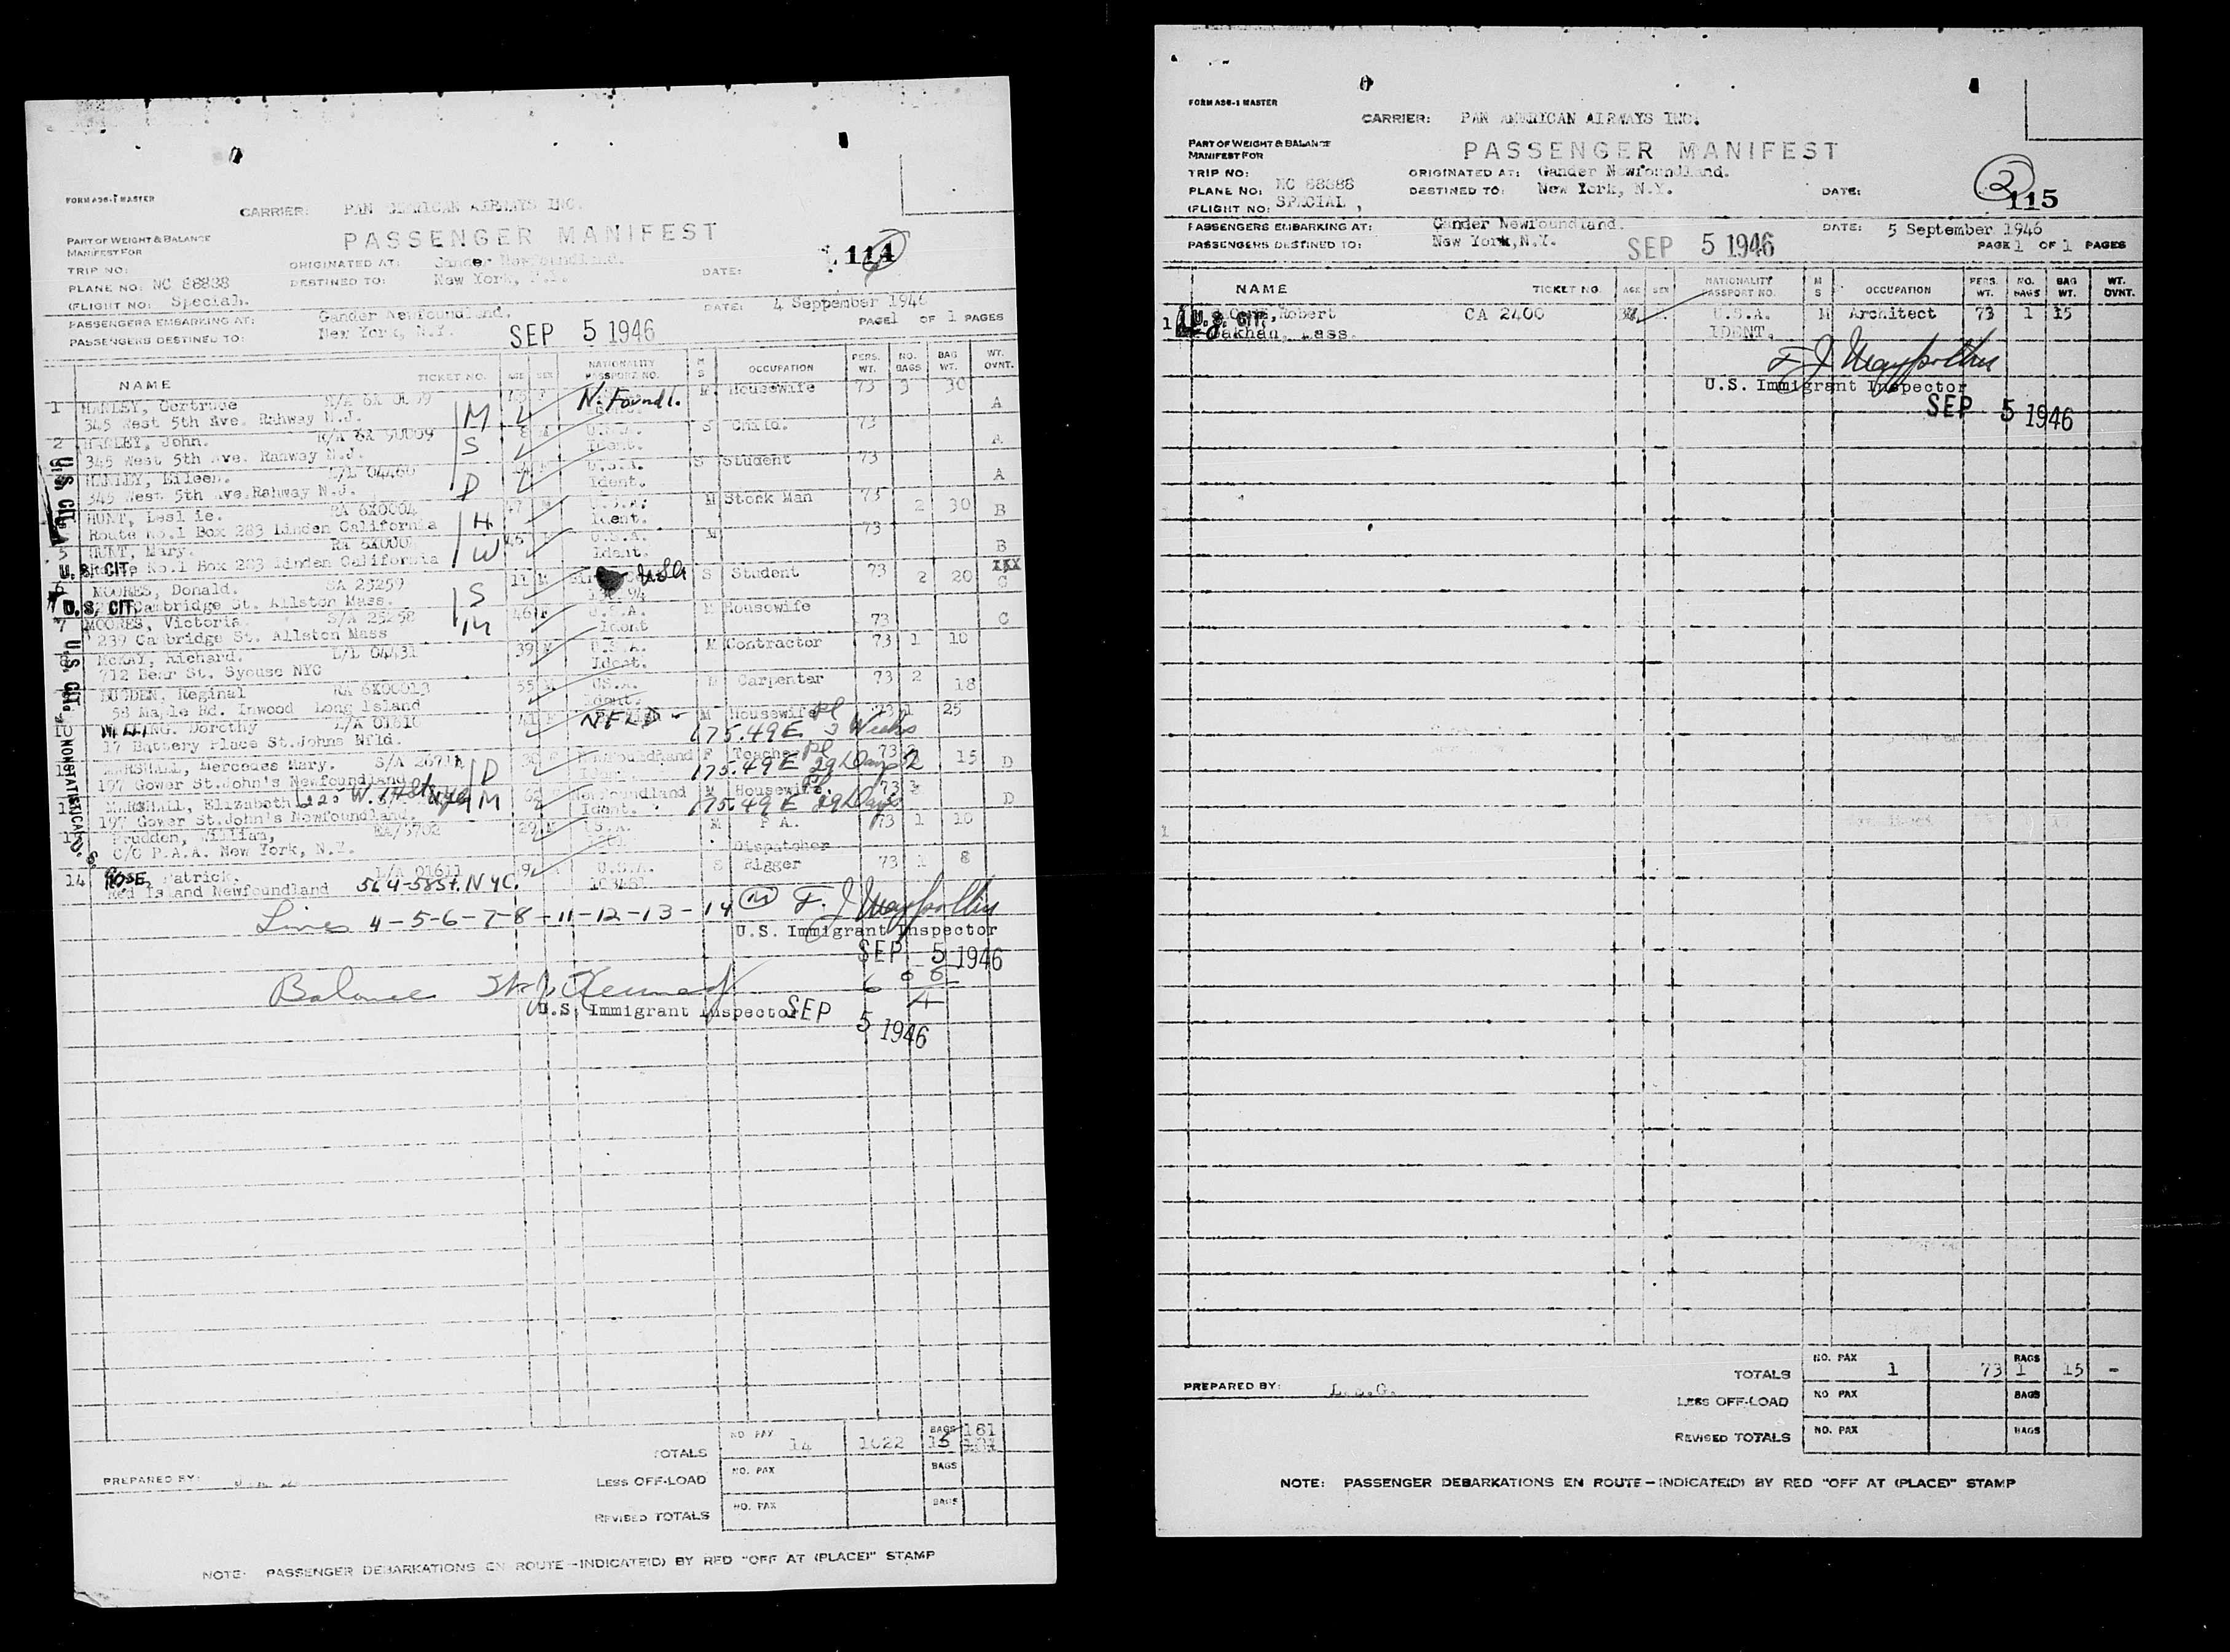 FORM A36-1 MASTER
CARRIER: PAN AMERICAN AIRWAYS INC.
PASSENGER MANIFEST
114
PART OF WEIGHT & BALANCE
MANIFEST FOR
TRIP NO:
ORIGINATED AT: Gander Newfoundland.
DATE:
PLANE NO: NC 88838
DESTINED TO: New York, N.Y.
(FLIGHT NO: Special.
DATE: 4 Seppember 1946
PASSENGERS EMBARKING AT: Gander Newfoundland.
PAGE 1 OF 1 PAGES
PASSENGERS DESTINED TO: New York, N.Y.
SEP 5 1946
NAME TICKET NO. AGE SEX NATIONALITY PASSPORT NO. M S OCCUPATION PERS. WT. NO. BAGS BAG WT. WT. OVNT.
1 HANLEY, Gertrude F N. Foundl. M Housewife 73 3 30 A
345 West 5th Ave. Rahway N.J. M
2 HANLEY, John. 8 M U.S.A. S Child. 73 A
345 West 5th Ave. Rahway N.J. S Ident.
HANLEY, Eileen. L/L 04460 U.S.A. S Student 73 A
345 West 5th Ave. Rahway N.J. D Ident.
HUNT, Leslie. RA 6X0004 47 M U.S.A. M Stock Man 73 2 30 B
Route No.1 Box 283 Linden California H Ident.
5 HUNT, Mary. 45 U.S.A. M 73 B
Route No.1 Box 283 Linden California W Ident.
U.S. CIT.
6 MOORES, Donald. SA 25259 11 M USA S Student 73 2 20 C
Cambridge St. Allston Mass. S
U.S. CIT.
7 MOORES, Victoria. S/A 25258 46 F U.S.A. M Housewife 73 C
239 Cambridge St. Allston Mass M Ident
8 McKAY, Richard. L/L 04431 39 M U.S.A. M Contractor 73 1 10
712 Bear St. Syouse NYC Ident.
Reginal RA 6X00013 55 M US.A. M Carpenter 73 2 18
58 Maple Rd. Inwood Long Island Ident.
10 Dorothy L/A 01610 41 F NFLD - M Housewife Pl 73 1 25
17 Battery Place St.Johns Nfld. 175.49 E 3 Weeks
MARSHALL, Mercedes Mary. S/A 26711 D 30 F Newfoundland F Teacher Pl 73 2 15 D
197 Gower St.John's Newfoundland 175.49 E 29 Days
MARSHALL, Elizabeth M Newfoundland M Housewife. Pl 73 D
197 Gower St.John's Newfoundland. Ident. 175.49 E 29 Days
Prudden, William, EA/3702 29 M U.S.A. M P A. 73 1 10
C/O P.A.A. New York, N.Y. Dispatcher
14 ROSE, Patrick. L/A 01611 U.S.A. S Rigger 73 1 8
Red Island Newfoundland 564-58St. NYC.
U.S. CIT.
U.S. CIT.
NONSTATISTICAL
Lines 4-5-6-7-8-11-12-13-14
U.S. Immigrant Inspector
SEP 5 1946
Balance
U.S. Immigrant Inspector
SEP 5 1946
TOTALS NO. PAX 14 1022 BAGS 15 181
PREPARED BY:
LESS OFF-LOAD NO. PAX BAGS
REVISED TOTALS NO. PAX BAGS
NOTE: PASSENGER DEBARKATIONS EN ROUTE—INDICATE(D) BY RED "OFF AT (PLACE)" STAMP
FORM A36-1 MASTER
CARRIER: PAN AMERICAN AIRWAYS INC.
PART OF WEIGHT & BALANCE
MANIFEST FOR
PASSENGER MANIFEST
TRIP NO:
ORIGINATED AT: Gander Newfoundland.
2
PLANE NO: NC 88888
DESTINED TO: New York, N.Y.
DATE:
115
(FLIGHT NO: SPECIAL ,
PASSENGERS EMBARKING AT: Gander Newfoundland.
DATE: 5 September 1946
PASSENGERS DESTINED TO: New York,N.Y.
SEP 5 1946
PAGE 1 OF 1 PAGES
NAME TICKET NO. AGE SEX NATIONALITY PASSPORT NO. M S OCCUPATION PERS. WT. NO. BAGS BAG WT. WT. OVNT.
1 U.S. CIT. Robert CA 2400 U.S.A. M Architect 73 1 15
IDENT.
U.S. Immigrant Inspector
SEP 5 1946
TOTALS NO. PAX 1 73 BAGS 1 15 -
PREPARED BY:
LESS OFF-LOAD NO PAX BAGS
REVISED TOTALS NO. PAX BAGS
NOTE: PASSENGER DEBARKATIONS EN ROUTE—INDICATE(D) BY RED "OFF AT (PLACE)" STAMP